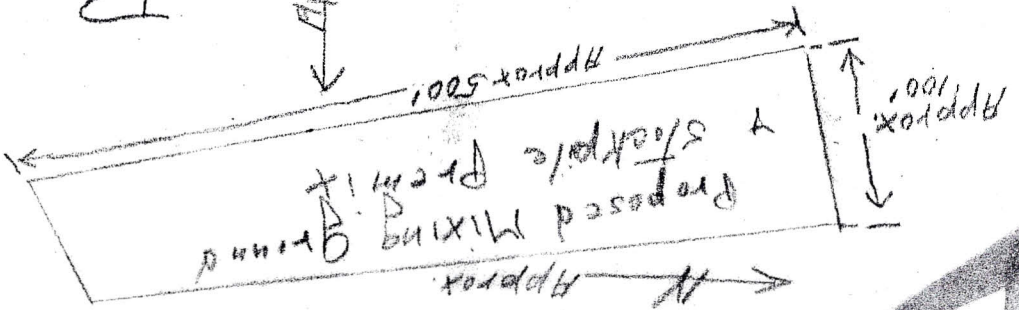 Approx. N
Proposed Mixing Ground
& Stockpile Premix
Approx.
100'
Approx 500'